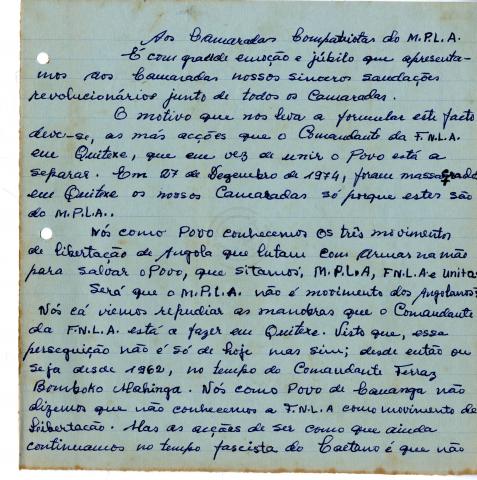 Aos Camaradas Compatriotas do M.P.L.A.
É com grande emoção e júbilo que apresenta-
mos aos Camaradas nossos sinceros saudações
revolucionários junto de todos os Camaradas.
O motivo que nos leva a formular este facto
deve-se, as más acções que o Comandante da F.N.L.A.
em Quitexe, que em vez de unir o Povo está a
separar. Em 27 de Dezembro de 1974, foram massacrados
em Quitexe os nossos Camaradas só porque estes são
do M.P.L.A..
Nós como Povo conhecemos os três movimentos
de libertação de Angola que lutam com Armas na mão
para salvar o Povo, que sitamos, M.P.L.A, F.N.L.A e Unita.
Será que o M.P.L.A. não é movimento dos Angolanos?
Nós cá viemos repudiar as manobras que o Comandante
da F.N.L.A. está a fazer em Quitexe. Visto que, essa
perseguição não é só de hoje mas sim; desde então ou
seja desde 1962, no tempo do Comandante Ferraz
Bomboko. Nós como Povo de não
dizemos que não conhecemos a F.N.L.A como movimento de
Libertação. Mas as acções de ser como que ainda
continuamos no tempo fascista do Caetano é que não